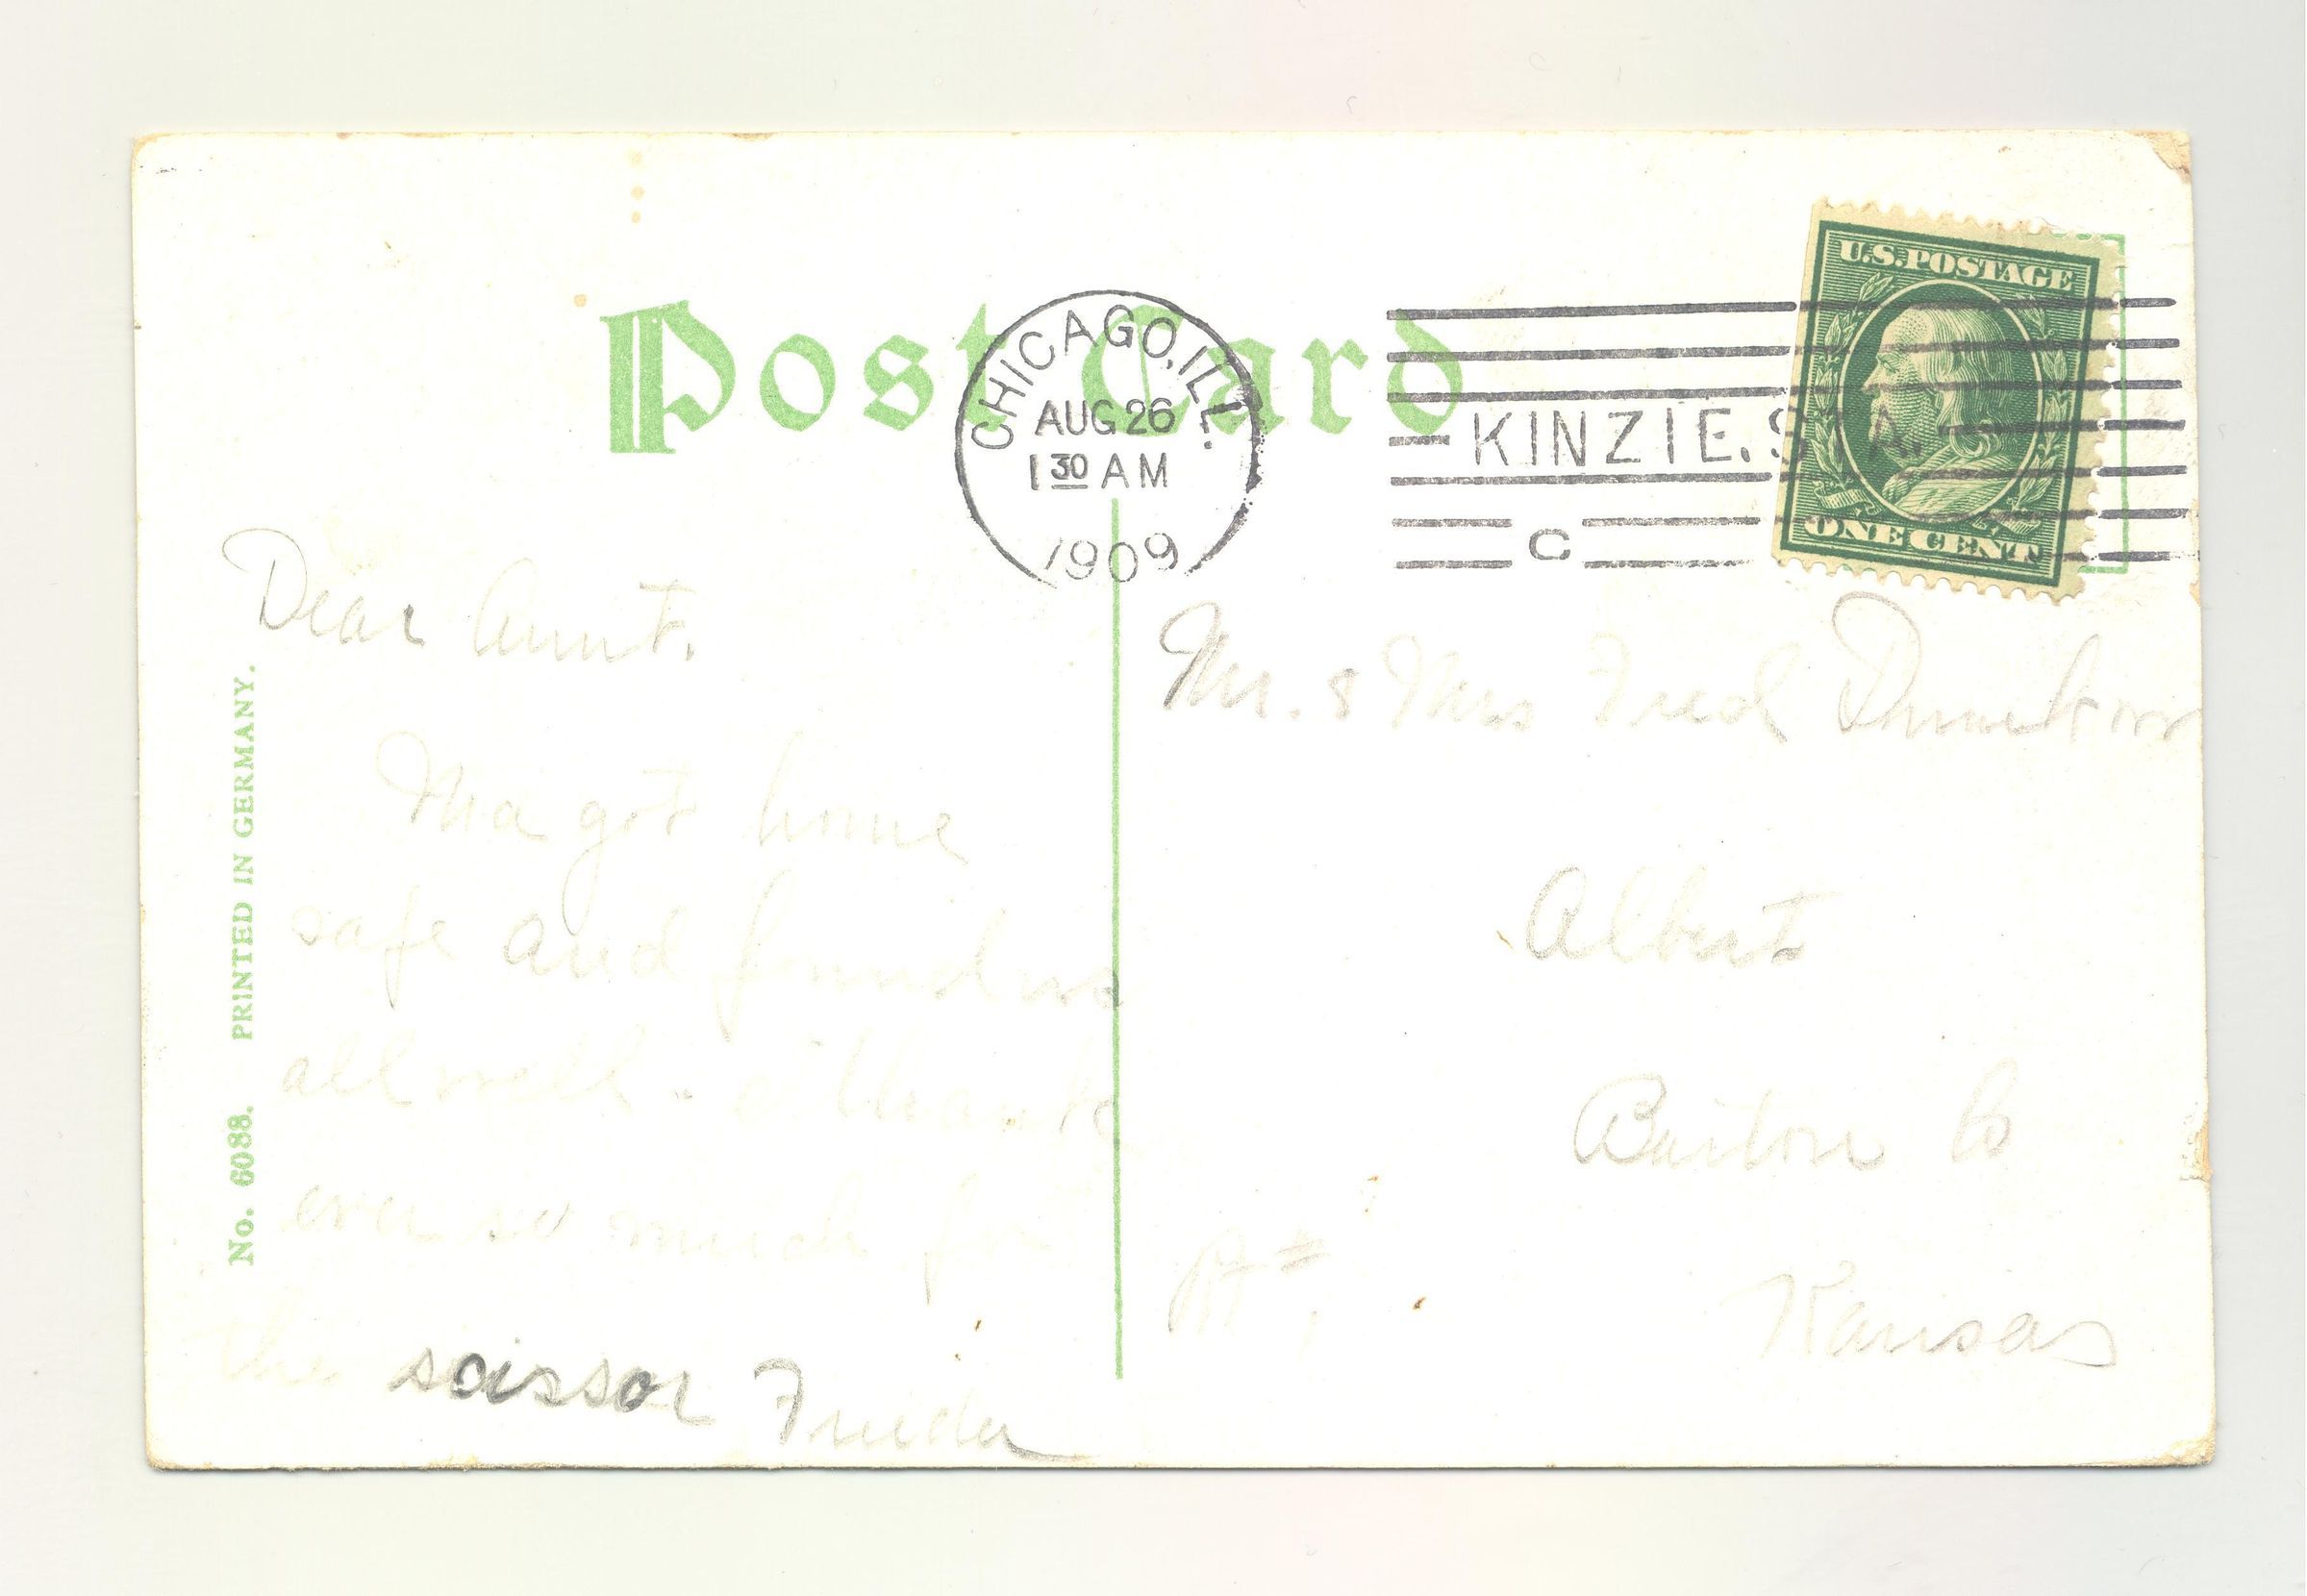 Post Card
CHICAGO, ILL.
AUG 26
1 30 AM
1909
KINZIE. STA.
C
U.S. POSTAGE
ONE CENT
No. 6088. PRINTED IN GERMANY.
Dear Aunt.
Ma got home
safe and found us
all well. thank
ever so much for
the scissor Frieda
Mr. & Mrs Fred
Albert
Barton Co
Kansas